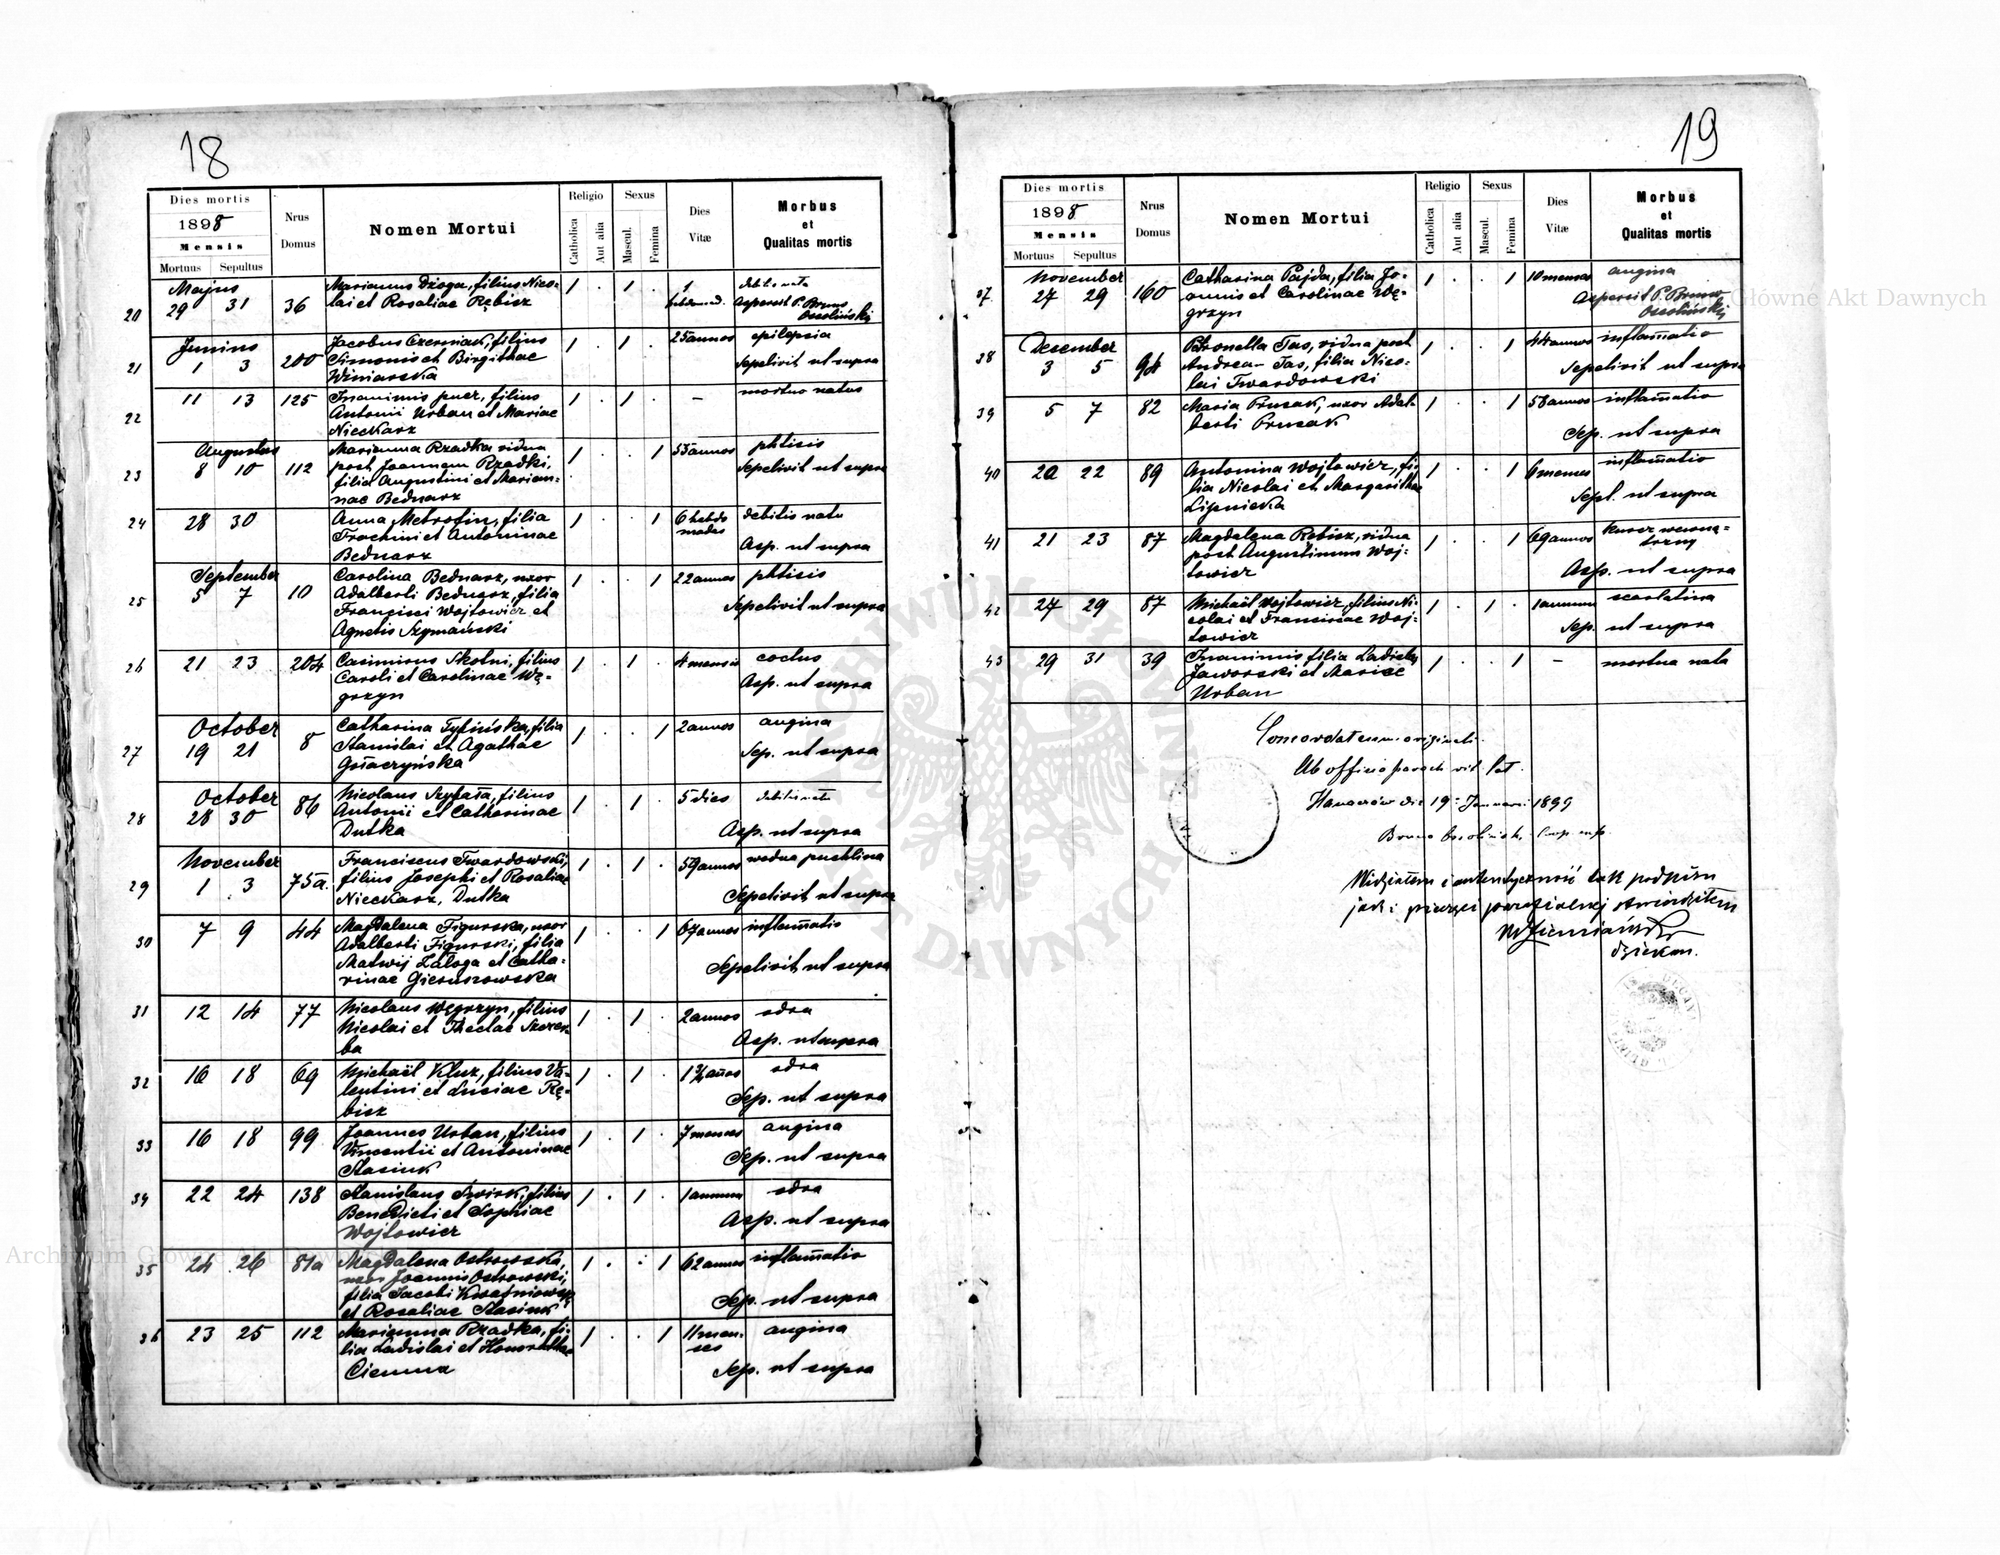 18
Dies mortis
1898
Mensis
Mortuus Sepultus
Nrus
Domus
Nomen Mortui
Religio
Catholica
Aut alia
Sexus
Mascul.
Femina
Dies
Vitæ
Morbus
et
Qualitas mortis
Majus
20 29 31 36 Marianus Dżoga, filius Nico-
lai et Rosaliae Rębisz
1 . 1 . 1
hebdomad.
Aspersit P. Bruno
Ossoliński
Junius
21 1 3 200 Jacobus Czerniak, filius
Simonis et Birgithae
Winiarska
1 . 1 . 25 annos epilepsia
Sepelivit ut supra
22 11 13 125 Inanimis puer, filius
Antonii Urban et Mariae
Nieckarz
1 . 1 . – mortuo natus
Augustus
23 8 10 112 Marianna Rzadka vidua
post Joannem Rzadki,
filia Augustini et Marian-
nae Bednarz
1 . . 1 53 annos phtisis
Sepelivit ut supra
24 28 30 Anna Metrofin, filia
Trochini et Antoninae
Bednarz
1 . . 1 6 hebdo
madas debilis natu
Asp. ut supra
September
25 5 7 10 Carolina Bednarz, uxor
Adalberti Bednarz, filia
Francisci Wojtowicz et
Agnetis Szymański
1 . . 1 22 annos phtisis
Sepelivit ut supra
26 21 23 204 Casimirus Skotni, filius
Caroli et Carolinae Wę-
grzyn
1 . 1 . 4 mensis coctus
Asp. ut supra
October
27 19 21 8 Catharina Tylińska, filia
Stanislai et Agathae
1 . . 1 2 annos angina
Sep. ut supra
October
28 28 30 86 Nicolaus Szytała, filius
Antonii et Catharinae
Dutka
1 . 1 . 5 dies
Asp. ut supra
November
29 1 3 75a Franciscus Twardowski,
filius Josephi et Rosaliae
Nieckarz, Dutka
1 . 1 . 59 annos wodna puchlina
Sepelivit ut supra
30 7 9 44 Magdalena Figurska, uxor
Adalberti Figurski, filia
Matwij Załoga et Catha-
rinae Gieruszowska
1 . . 1 67 annos inflam̄atio
Sepelivit ut supra
31 12 14 77 Nicolaus Węgrzyn, filius
Nicolai et Theclae Szczer
ba
1 . 1 . 2 annos odra
Asp. ut supra
32 16 18 69 Michaël Kluz, filius Va-
lentini et Luciae Rę-
bisz
1 . 1 . odra
Sep. ut supra
33 16 18 99 Joannes Urban, filius
Vincentii et Antoninae
Stasiuk
1 . 1 . 7 menses angina
Sep. ut supra
34 22 24 138 Stanislaus Świrk, filius
Benedicti et Sophiae
Wojtowicz
1 . 1 . 1 annum odra
Asp. ut supra
35 24 26 81a Magdalena Ostrowska,
uxor Joannis Ostrowski,
filia Jacobi Kwaśniowsk
et Rosaliae Stasiuk
1 . . 1 62 annos inflam̄atio
Sep. ut supra
36 23 25 112 Marianna Rzadka, fi-
lia Ladislai et Honorathae
Ciemna
1 . . 1 11 men-
ses angina
Sep. ut supra
19
Dies mortis
1898
Mensis
Mortuus Sepultus
Nrus
Domus
Nomen Mortui
Religio
Catholica
Aut alia
Sexus
Mascul.
Femina
Dies
Vitæ
Morbus
et
Qualitas mortis
November
37 27 29 160 Catharina Pajda, filia Jo-
annis et Carolinae Wę-
grzyn
1 . . 1 10 menses angina
Aspersit P. Bruno
Ossoliński
December
38 3 5 94 Petronella Tas, vidua post
Andream Tas, filia Nico-
lai Twardowski
1 . . 1 44 annos inflam̄atio
Sepelivit ut supra
39 5 7 82 Maria Prusak, uxor Adal-
berti Prusak
1 . . 1 58 annos inflam̄atio
Sep. ut supra
40 20 22 89 Antonina Wojtowicz, fi-
lia Nicolai et Margarithae
1 . . 1 6 menses inflam̄atio
Sepl. ut supra
41 21 23 87 Magdalena Rębisz, vidua
post Augustinum Woj-
towicz
1 . . 1 69 annos kurcz wewną-
trzny
Asp. ut supra
42 27 29 87 Michaël Wojtowicz, filius Ni-
colai et Franciscae Woj-
towicz
1 . 1 . 1 annum scarlatina
Sep. ut supra
43 29 31 39 Inanimis filia Ladislai
Jaworski et Mariae
Urban
1 . . 1 – mortua nata
Concordat cum originali.
Ab officio paroch. rit. lat.
Hanaczów die 19. Januarii 1899
Bruno Ossoliński
Widziałem i autentyczność tak podpisu
jak i pieczęci parafialnej stwierdziłem
dziekan.
ARCHIWUM GŁÓWNE AKT DAWNYCH
Archiwum Główne Akt Dawnych
Główne Akt Dawnych